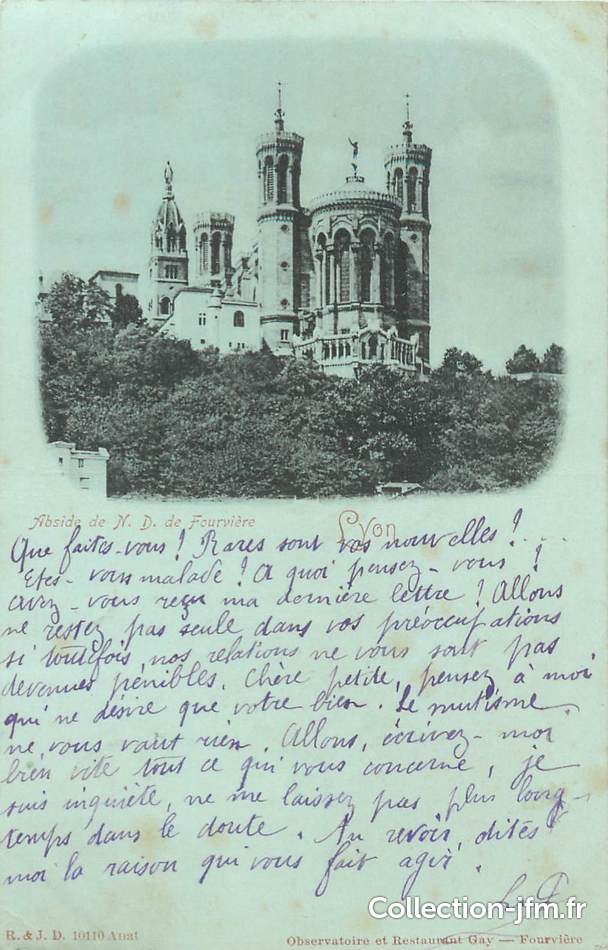 Abside de N. D. de Fourvière
Lyon
Que faites-vous! Rares sont vos nouvelles! ....
Etes-vous malade! A quoi pensez-vous!
avez-vous reçu ma dernière lettre! Allons
ne restez pas seule dans vos préoccupations
si toutefois nos relations ne vous sont pas
devenues pénibles. Chère petite, pensez à moi
qui ne désire que votre bien. Le mutisme
ne vous vaut rien. Allons, écrivez-moi
bien vite tout ce qui vous concerne, je
suis inquiète, ne me laissez pas plus long-
temps dans le doute. Au revoir, dites
moi la raison qui vous fait agir.
R. & J. D. 10110 Anat
Collection-jfm.fr
Observatoire et Restaurant Gay — Fourvière